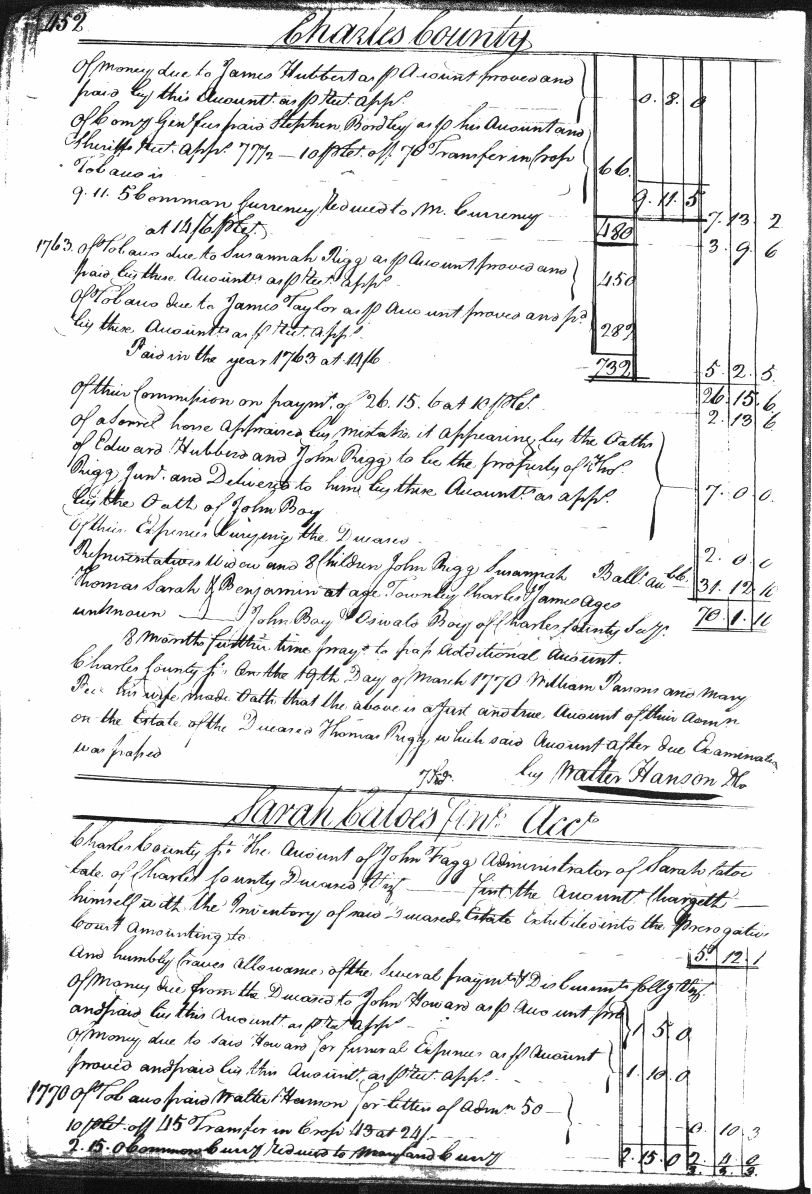 452
Charles County
Of money due to James Hubbert as p Acount proved and
paid by this Amount as p Ret. app.
0. 8. 0
Of Comy Genl fees paid Stephen Bordley as p his Acount and
Sheriffs Ret. app. 77½ — 10 pCt. off. 70 Transfer in Crop
Tobacco is
66
9. 11. 5 Common Currency Reduced to M. Currency
9. 11. 5
at 14/6 pCt.
480
7. 13. 2
3. 9. 6
1763. Of Tobacco due to Susannah Rigg as p Acount proved and
paid by these Amounts as p Ret. app.
450
Of Tobacco due to James Taylor as p Account proved and pd
by these Amounts as p Ret. app.
282
Paid in the year 1763 at 14/6
732
5. 2. 5
26. 15. 6
Of their Commission on paymt. of 26. 15. 6 at 10 pCt.
2. 13. 6
Of a sorrel horse appraised by mistake it appearing by the Oaths
of Edward Hubbird and John Rigg to be the property of Thos.
Rigg Junr. and Delivered to him by these Amounts as app.
by the Oath of John Boy
7. 0. 0.
Of their Expences burying the Deceased
2. 0. 0
Representatives Widow and 8 Children John Rigg Susannah
Ball.
31. 12. 10
Thomas Sarah & Benjamin at age Townley Charles & James ages
unknown — John Boy & Oswald Boy of Charles County
70. 1. 10
8 Months further time prayd to pass Additional Amount.
Charles County ss. On the 19th Day of March 1770 William Parsons and Mary
his wife made Oath that the above is a Just and true Amount of their Admn
on the Estate of the Deceased Thomas Rigg, which said Amount after due Examination
was passed
by Walter Hanson
Sarah Catoe's Acct
Charles County ss. The Amount of John Fagg Administrator of Sarah Catoe
late of Charles County Deceased Viz — first the Amount Chargeth —
himself with the Inventory of said Deceased Estate Exhibited into the Prerogative
Court amounting to
5. 12. 1
And humbly Craves allowance of the Several paymts & Disbursmts follg Viz.
Of Money due from the Deceased to John Howard as p Account
and paid by this Amount as p Ret. app.
1 5 0
Of Money due to said Howard for funeral Expences as p Amount
proved and paid by this Amount as p Ret. app.
1. 10. 0
1770 Of Tobacco paid Walter Hanson for letters of Admn 50 —
10 pCt. off 45 Transfer in Crop 43 at 24/—
0. 10 3
2. 15. 0 Common Curry Reduced to Maryland Curry
2. 15. 0